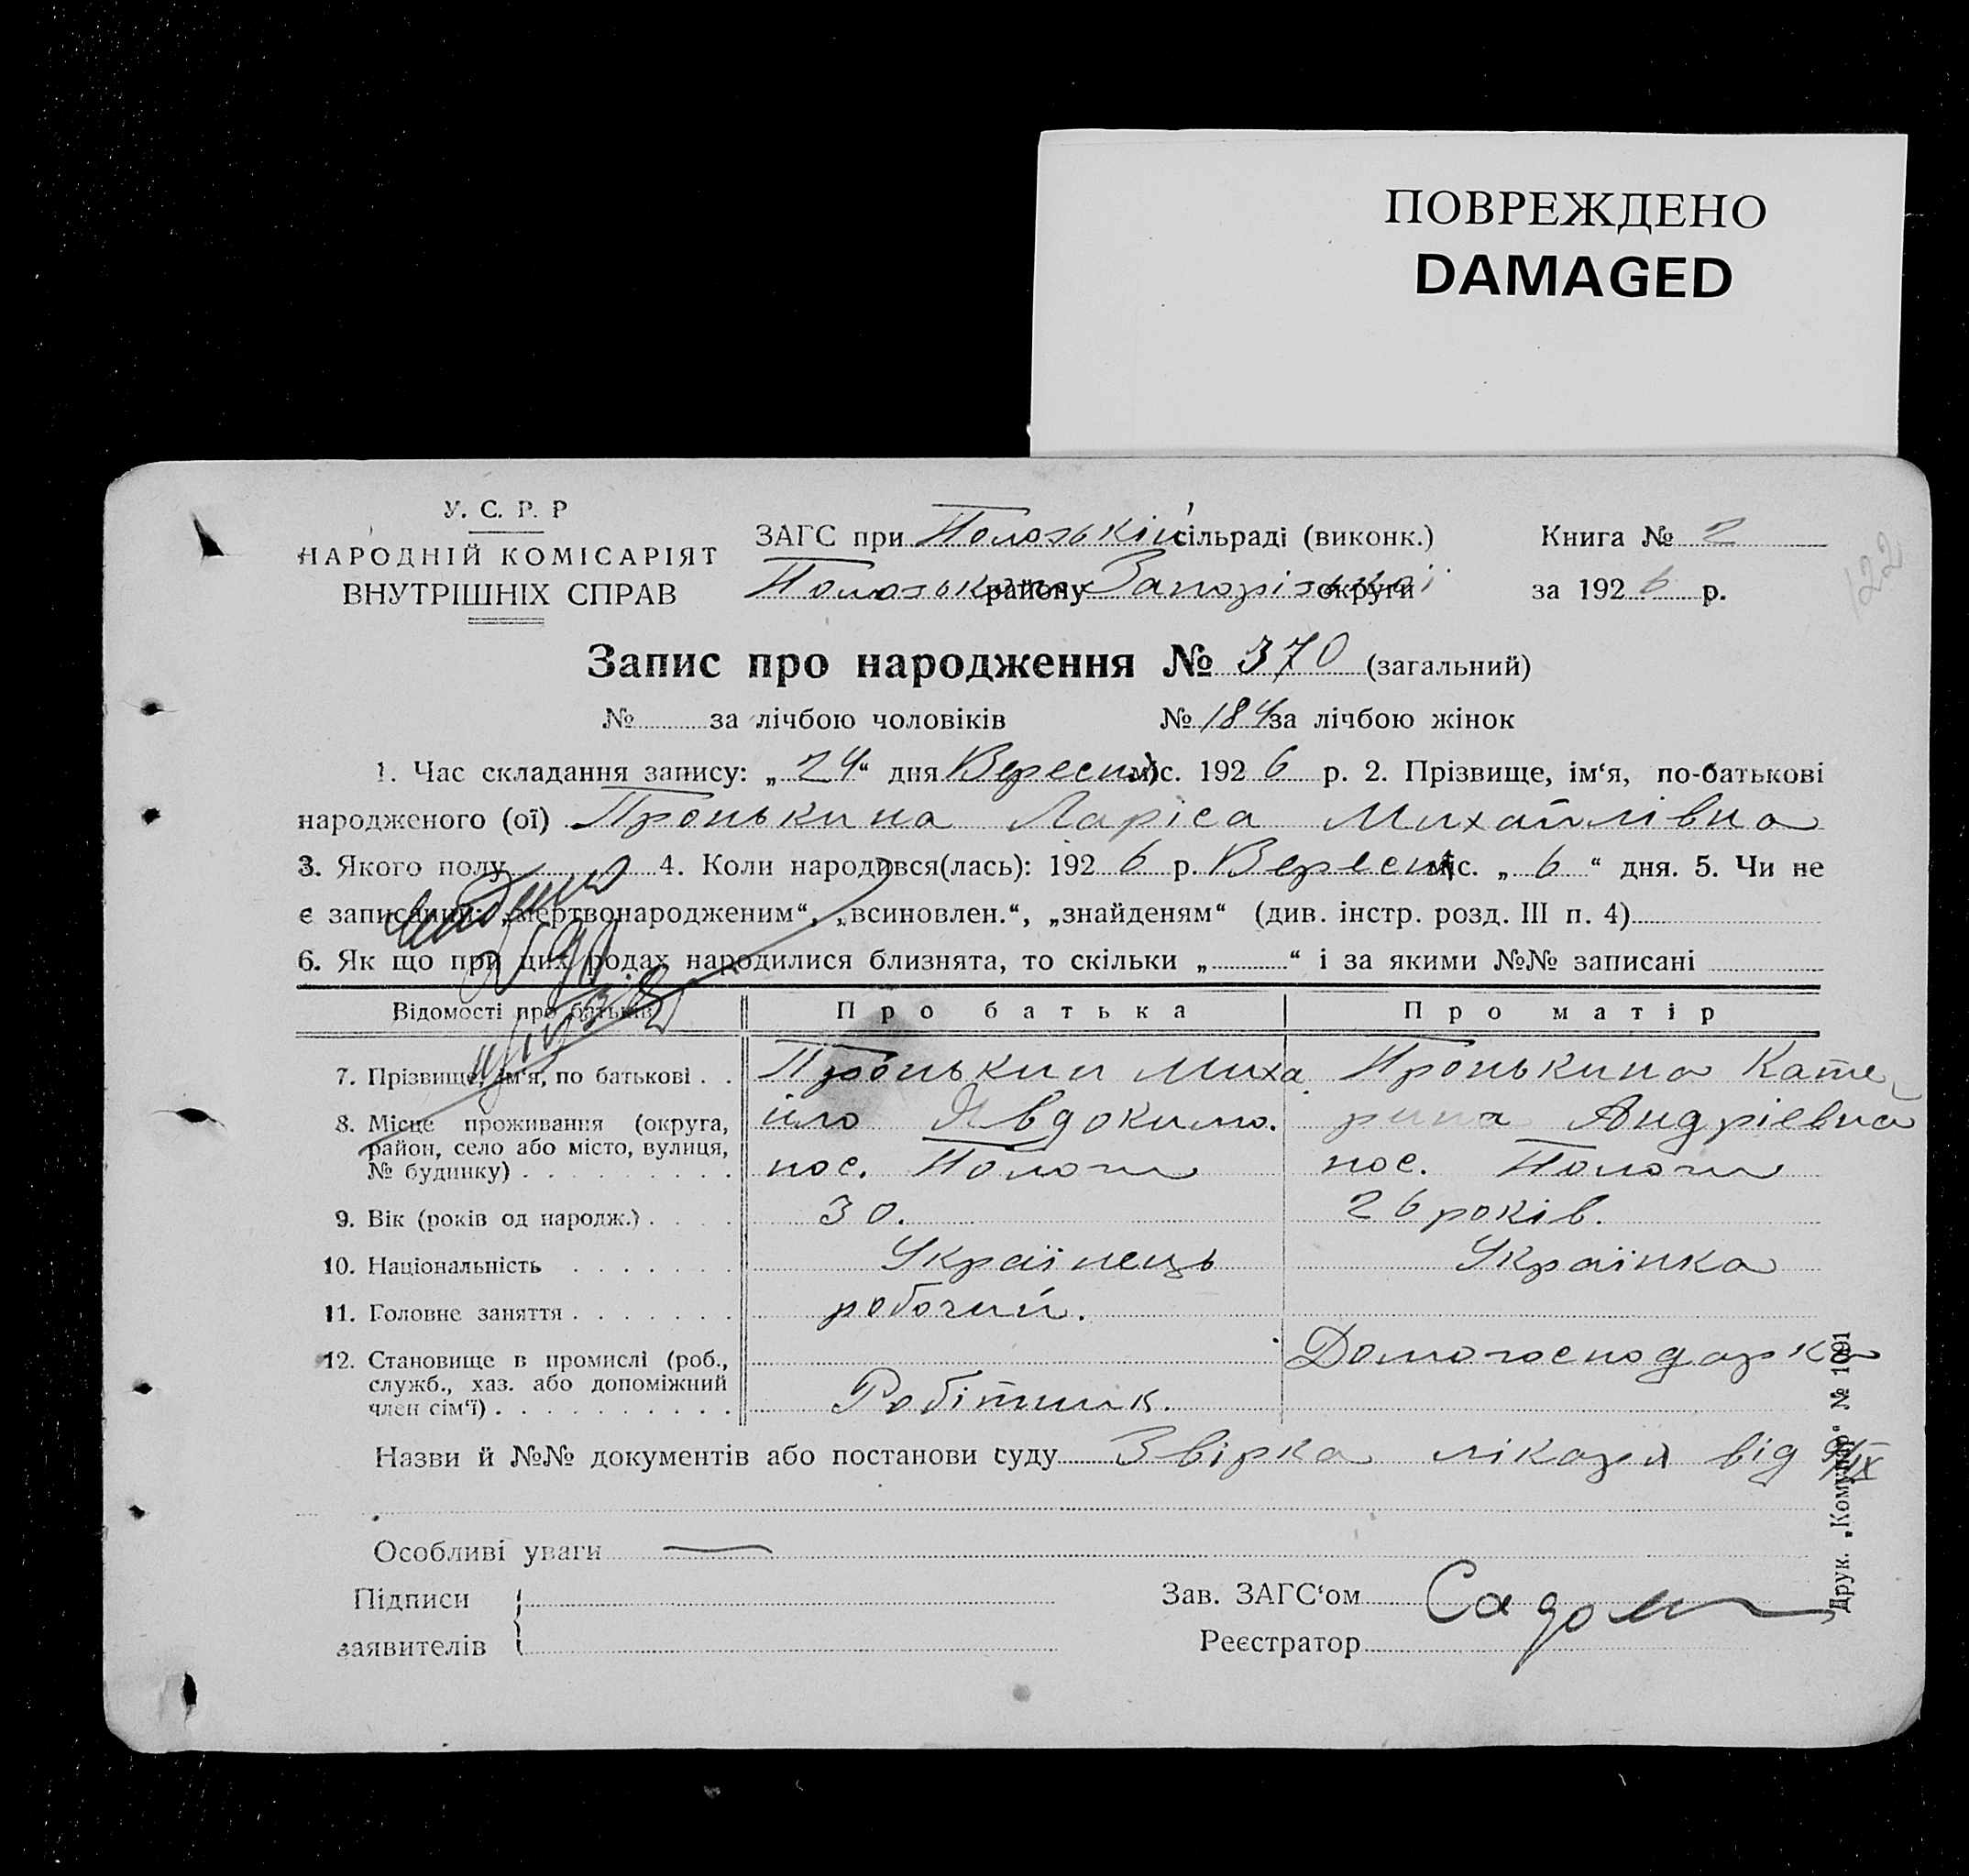 ПОВРЕЖДЕНО
DAMAGED
У. С. Р. Р
НАРОДНІЙ КОМІСАРІЯТ
ВНУТРІШНІХ СПРАВ
ЗАГС при Пологькій сільраді (виконк.)
Пологького району Запорізької округи
Книга № 2
за 1926 р.
122
Запис про народження № 370 (загальний)
№ за лічбою чоловіків № 184 за лічбою жінок
1. Час складання запису: „24“ дня Вересня міс. 1926 р. 2. Прізвище, ім‘я, по-батькові
народженого (ої) Пронькина Ларіса Михайлівна
3. Якого полу 4. Коли народився(лась): 1926 р. Вересня міс. „6“ дня. 5. Чи не
є записаний: „мертвонародженим“, „всиновлен.“, „знайденям“ (див. інстр. розд. III п. 4)
6. Як що при цих родах народилися близнята, то скільки „ “ і за якими №№ записані
Відомості про батьків Про батька Про матір
7. Прізвище, ім‘я, по батькові . . Пронькин Миха Пронькина Кате
йло Явдокимо. рина Андріевна
8. Місце проживання (округа,
район, село або місто, вулиця,
№ будинку) . . . . . . . . . пос. Пологи пос. Пологи
9. Вік (років од народж.) . . . . 30. 26 років.
10. Національність . . . . . . . Українець Українка
11. Головне заняття . . . . . . . робочий.
12. Становище в промислі (роб., Домогосподарка
служб., хаз. або допоміжний
член сім‘ї) . . . . . . . . . . Робітник.
Назви й №№ документів або постанови суду Звірка лікаря від 9/IX
Особливі уваги —
Підписи
заявителів
Зав. ЗАГС‘ом
Реєстратор
Друк. „Комунар“ № 1091